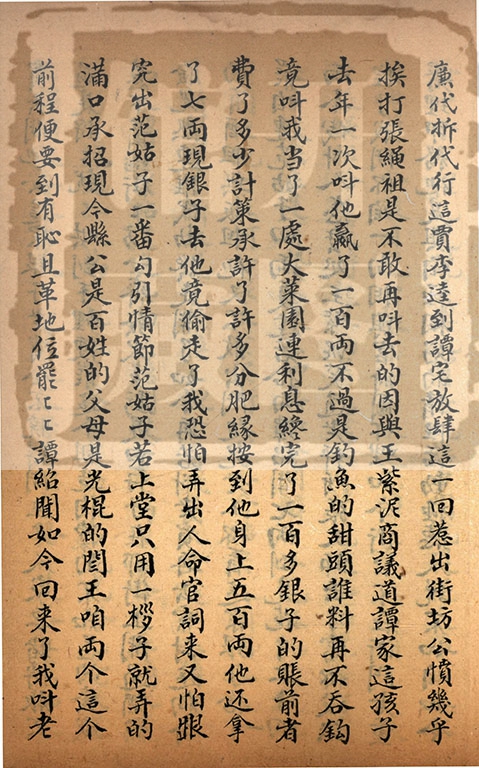 廉代拆代行這賈李逵到譚宅放肆這一回惹出街坊公憤幾乎
挨打張繩祖是不敢再呌去的因與王紫泥商議道譚家這孩子
去年一次呌他贏了一百両不過是釣魚的甜頭誰料再不吞鈎
竟呌我当了一處大菜園連利息纔完了一百多銀子的賬前者
費了多少計策承許了許多分肥緣按到他身上五百両他还拿
了七両現銀子去他竟偷走了我恐怕弄出人命官詞来又怕跟
究出范姑子一番勾引情節范姑子若上堂只用一桚子就弄的
滿口承招現今縣公是百姓的父母是光棍的閻王咱両个這个
前程便要到有恥且革地位罷了了譚紹聞如今回来了我呌老